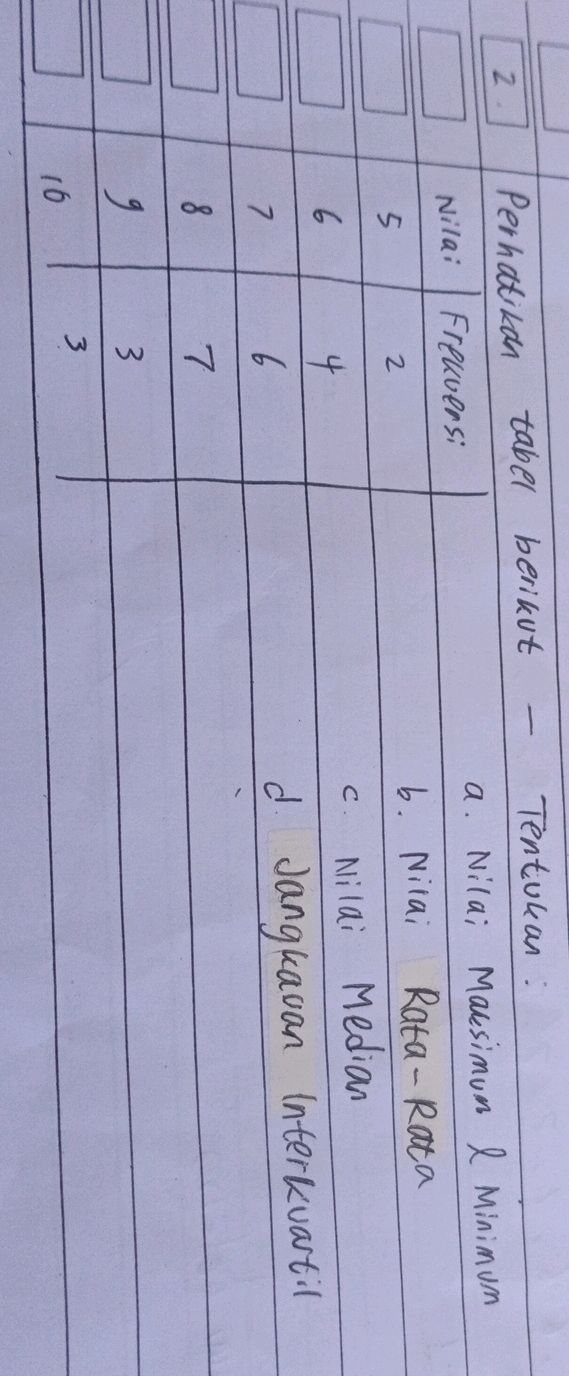 2. Perhatikan tabel berikut - Tentukan :
Nilai Frekuensi a. Nilai Maksimum & Minimum
5 2 b. Nilai Rata-Rata
6 4 c. Nilai Median
7 6 d. Jangkauan Interkuartil
8 7
9 3
10 3